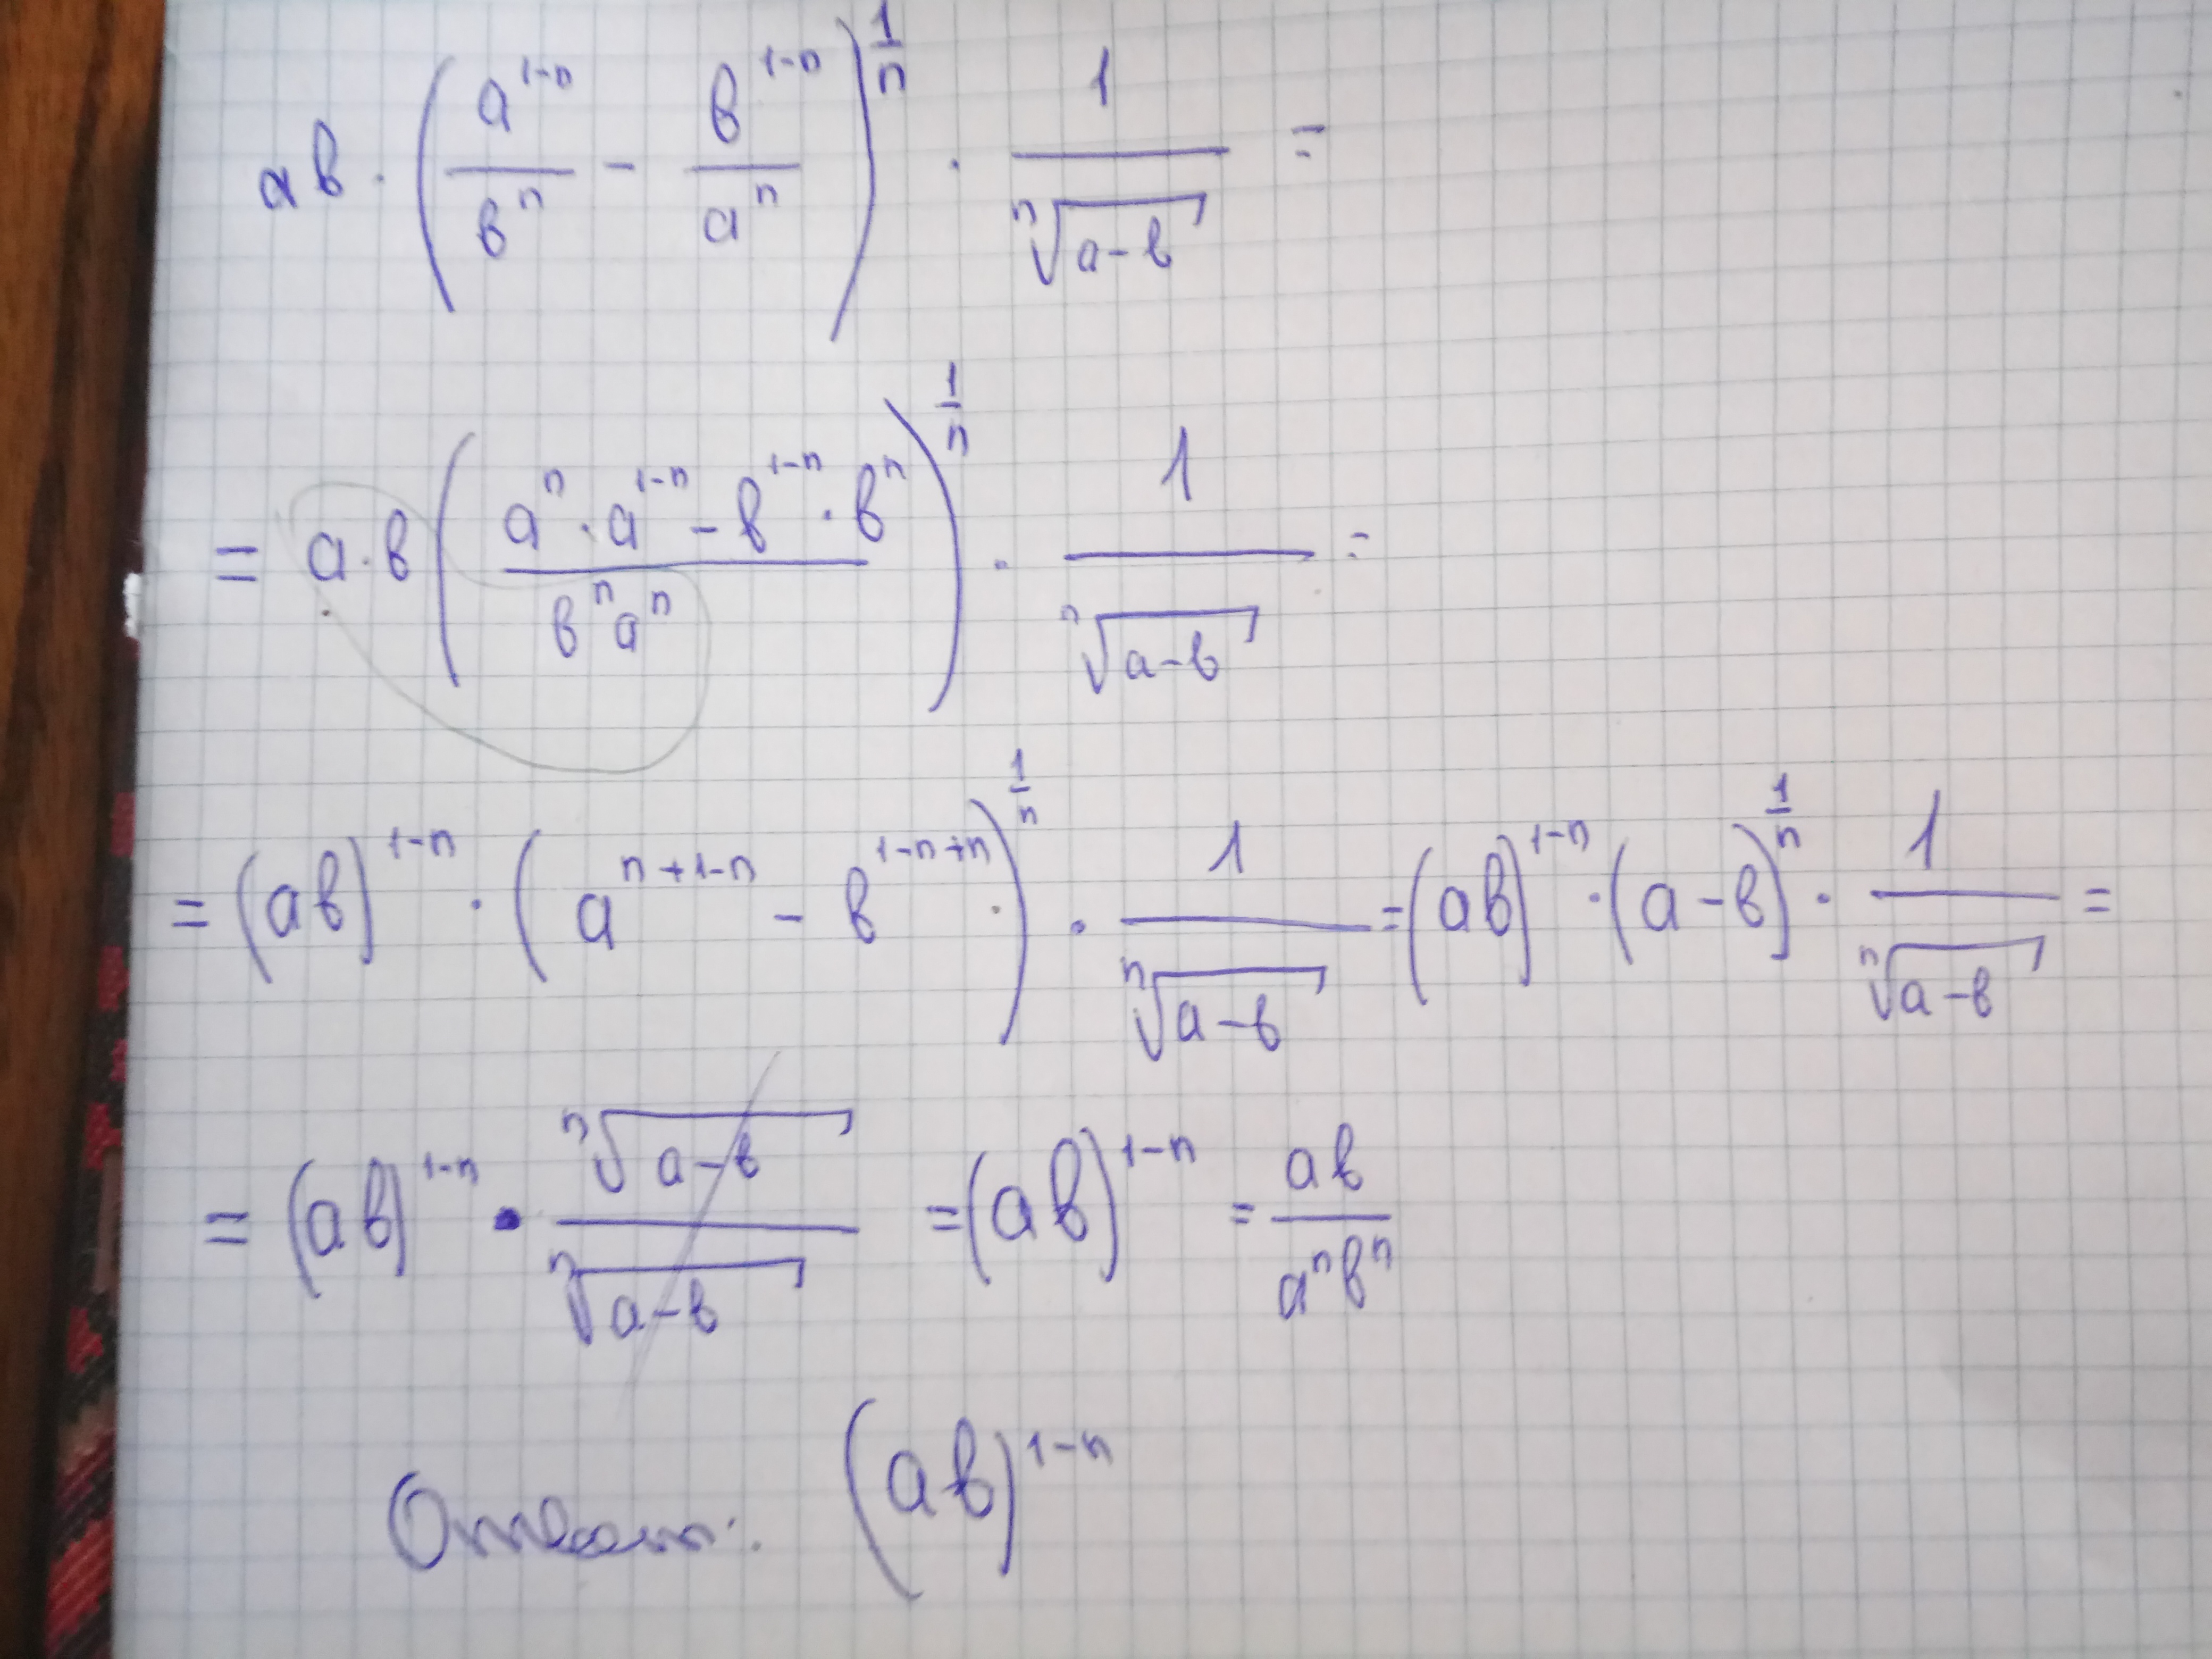 ab · (a^(1-n)/b^n - b^(1-n)/a^n)^(1/n) · 1/ⁿ√(a-b) =
= a·b ((a^n · a^(1-n) - b^(1-n) · b^n)/(b^n a^n))^(1/n) · 1/ⁿ√(a-b) =
= (ab)^(1-n) · (a^(n+1-n) - b^(1-n+n))^(1/n) · 1/ⁿ√(a-b) = (ab)^(1-n) · (a-b)^(1/n) · 1/ⁿ√(a-b) =
= (ab)^(1-n) · ⁿ√(a-b)/ⁿ√(a-b) = (ab)^(1-n) = ab/(a^n b^n)
Ответ: (ab)^(1-n)